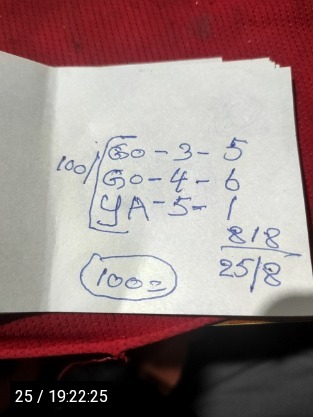 100/ GO - 3 - 5
GO - 4 - 6
YA - 5 - 1
818
25/8
100=
25 / 19:22:25